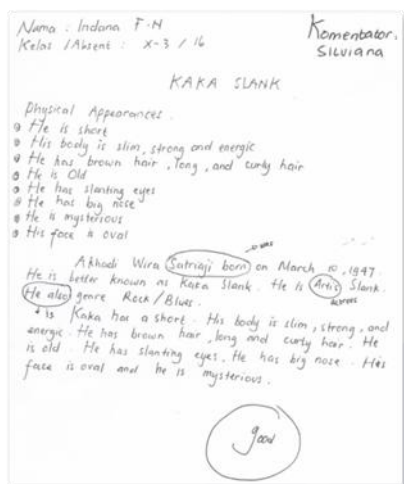 Nama : Indana F.N
Kelas / Absent : X-3 / 16
Komentator:
Silviana
KAKA SLANK
Physical Appearances.
He is short
His body is slim, strong and energic
He has brown hair, long, and curly hair
He is Old
He has slanting eyes
He has big nose
He is mysterious
His face is oval
was
Akhadi Wira Satriaji born on March 10, 1947.
He is better known as Kaka Slank. He is Artis Slank.
He also genre Rock / Blues.
is
Kaka has a short. His body is slim, strong, and
energic. He has brown hair, long and curly hair. He
is old. He has slanting eyes. He has big nose. His
face is oval and he is mysterious.
good